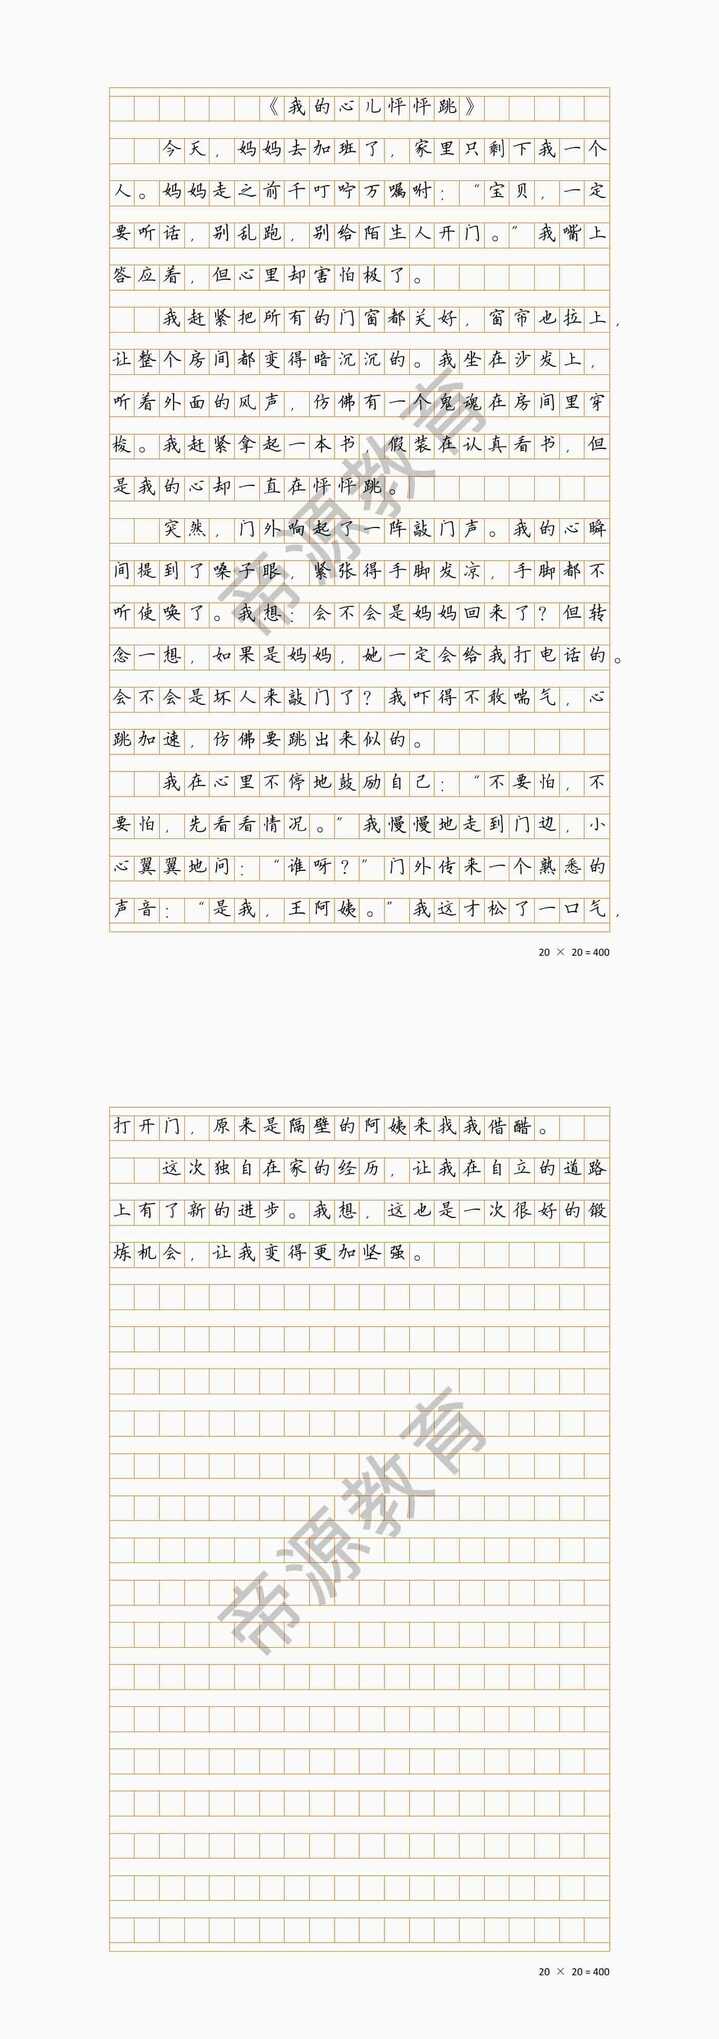 《我的心儿怦怦跳》
今天，妈妈去加班了，家里只剩下我一个
人。妈妈走之前千叮咛万嘱咐：“宝贝，一定
要听话，别乱跑，别给陌生人开门。”我嘴上
答应着，但心里却害怕极了。
我赶紧把所有的门窗都关好，窗帘也拉上，
让整个房间都变得暗沉沉的。我坐在沙发上，
听着外面的风声，仿佛有一个鬼魂在房间里穿
梭。我赶紧拿起一本书，假装在认真看书，但
是我的心却一直在怦怦跳。
突然，门外响起了一阵敲门声。我的心瞬
间提到了嗓子眼，紧张得手脚发凉，手脚都不
听使唤了。我想：会不会是妈妈回来了？但转
念一想，如果是妈妈，她一定会给我打电话的。
会不会是坏人来敲门了？我吓得不敢喘气，心
跳加速，仿佛要跳出来似的。
我在心里不停地鼓励自己：“不要怕，不
要怕，先看看情况。”我慢慢地走到门边，小
心翼翼地问：“谁呀？”门外传来一个熟悉的
声音：“是我，王阿姨。”我这才松了一口气，
20 × 20＝400
打开门，原来是隔壁的阿姨来找我借醋。
这次独自在家的经历，让我在自立的道路
上有了新的进步。我想，这也是一次很好的锻
炼机会，让我变得更加坚强。
20 × 20＝400
帝源教育
帝源教育